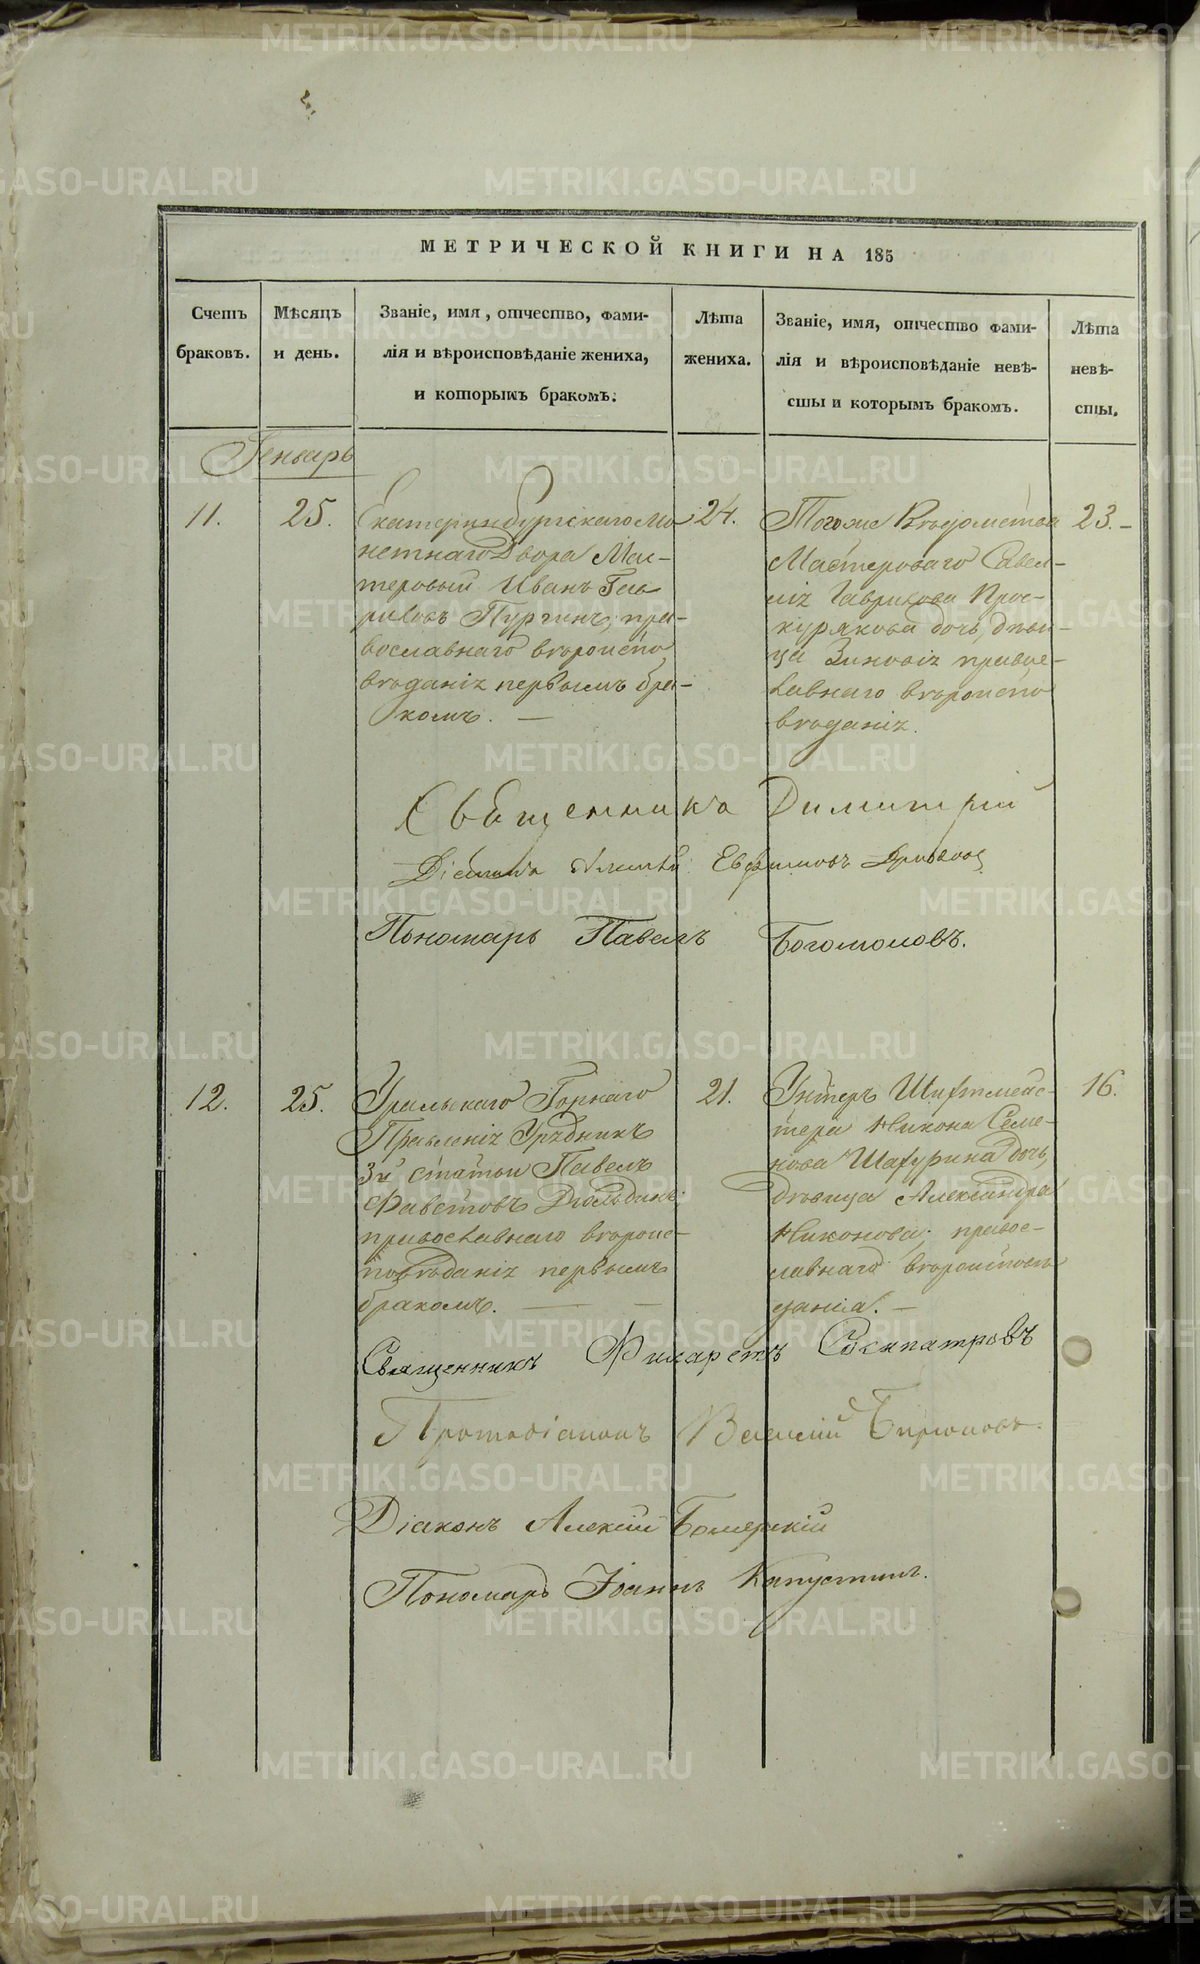 МЕТРИЧЕСКОЙ КНИГИ НА 185
Счетъ браковъ.
Мѣсяцъ и день.
Званіе, имя, отчество, фами-
лія и вѣроисповѣданіе жениха,
и которымъ бракомъ.
Лѣта жениха.
Званіе, имя, отчество фами-
лія и вѣроисповѣданіе невѣ-
сты и которымъ бракомъ.
Лѣта невѣ-
сты.
Генварь
11.
25.
Екатеринбургскаго Мо
нетнаго Двора Мас-
теровый Иванъ Гав
риловъ Пургинъ, пра-
вославнаго вѣроиспо
вѣданія первымъ бра-
комъ. —
24.
Тогоже Вѣдомства
Мастероваго Савел-
ія Гаврилова Прос-
курякова дочь, дѣви-
ца Зиновія правос-
лавнаго вѣроиспо
вѣданія.
23. –
Священникъ Димитрій
Діаконъ Евфимовъ
Пономарь Павелъ Богомоловъ.
12.
25.
Уральскаго Горнаго
Правленія Урядникъ
3й статьи Павелъ
Фавстовъ
православнаго вѣроис-
повѣданія первымъ
бракомъ. — —
21.
Унтеръ Шихтмейс-
тера Никона Семе-
нова Шафурина дочь,
дѣвица Александра
Никонова; правос-
лавнаго вѣроисповѣ
данія. —
16.
Священникъ Филаретъ Сосипатровъ
Протодіаконъ Василій Бирюковъ.
Діаконъ Алексій
Пономарь Іоаннъ Капустинъ.
METRIKI.GASO-URAL.RU